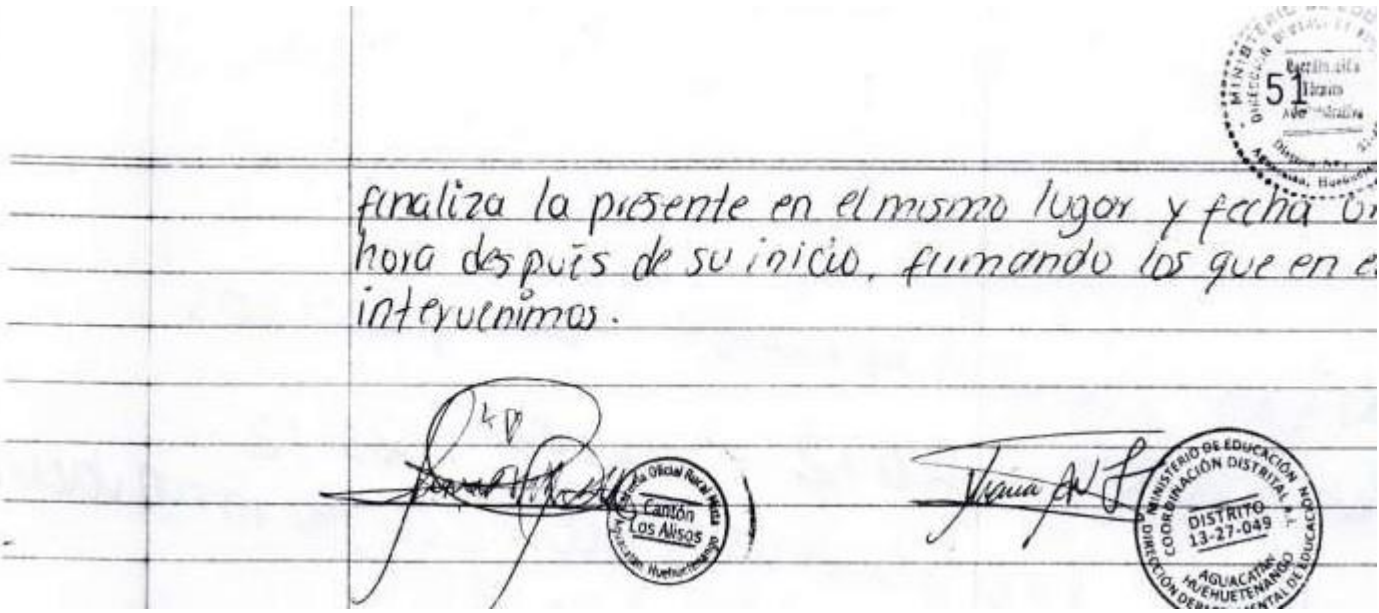 51
finaliza la presente en el mismo lugar y fecha un
hora después de su inicio, firmando los que en el
intervenimos.
Escuela Oficial Rural Mixta
Cantón
Los Alisos
Aguacatán Huehuetenango
MINISTERIO DE EDUCACIÓN
COORDINACIÓN DISTRITAL
DISTRITO
13-27-049
AGUACATÁN
HUEHUETENANGO
DIRECCIÓN DEPARTAMENTAL DE EDUCACIÓN